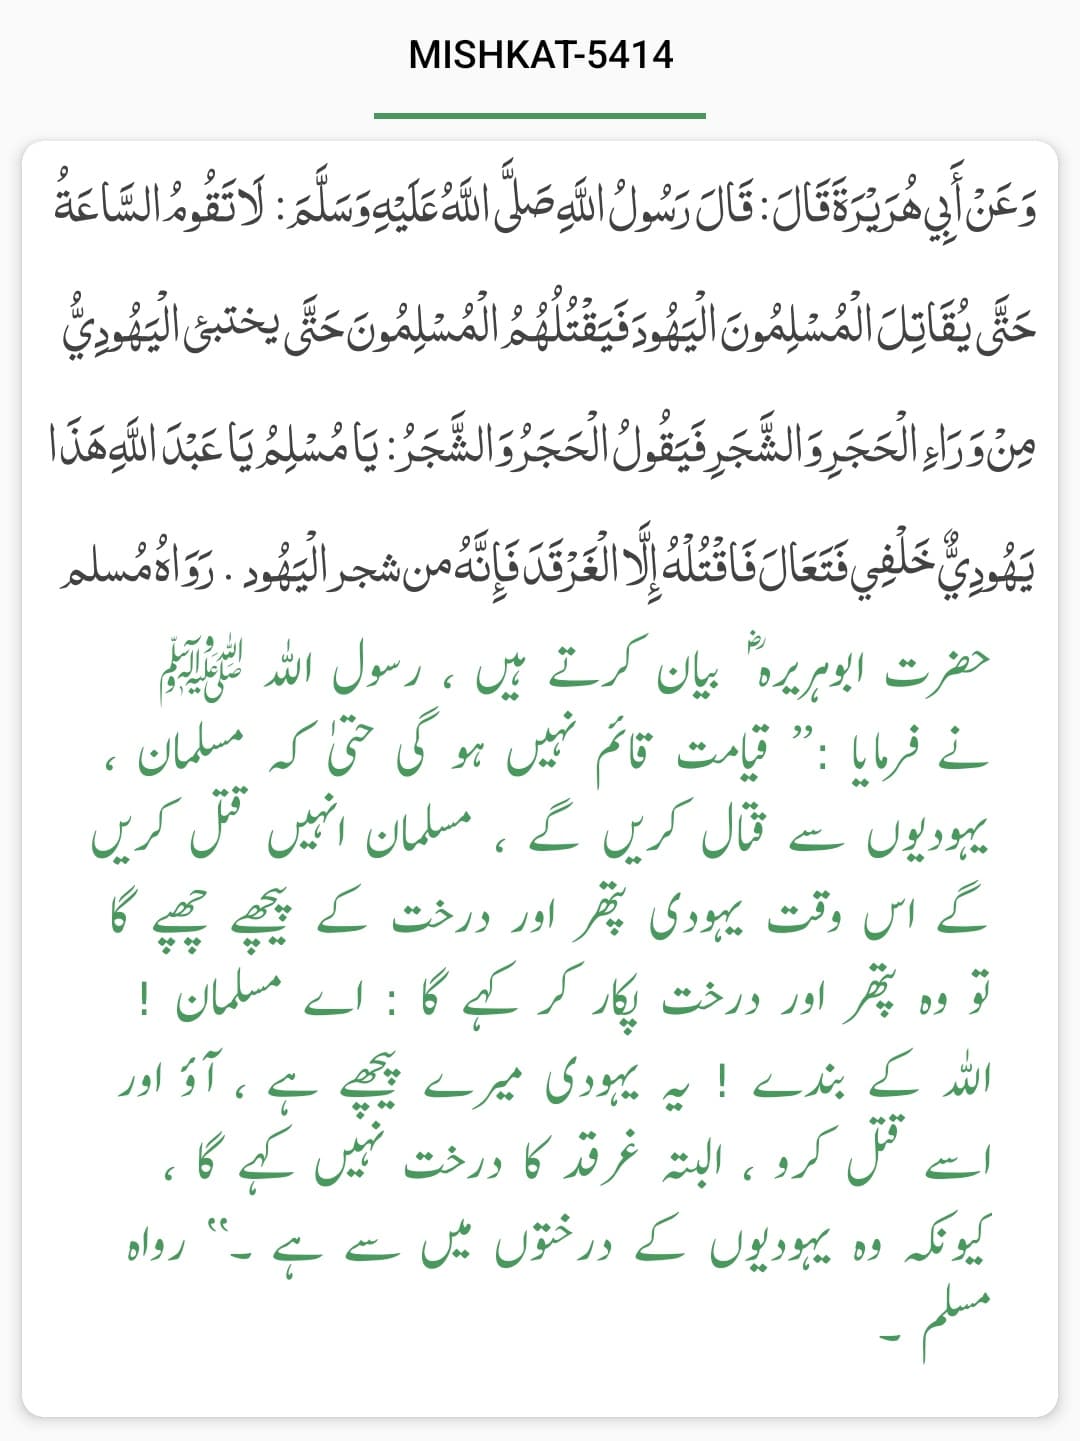 MISHKAT-5414
وَعَنْ أَبِي هُرَيْرَةَ قَالَ: قَالَ رَسُولُ اللَّهِ صَلَّى اللَّهُ عَلَيْهِ وَسَلَّمَ: لَا تَقُومُ السَّاعَةُ
حَتَّى يُقَاتِلَ الْمُسْلِمُونَ الْيَهُودَ فَيَقْتُلُهُمُ الْمُسْلِمُونَ حَتَّى يختبئ الْيَهُودِيُّ
مِنْ وَرَاءِ الْحَجَرِ وَالشَّجَرِ فَيَقُولُ الْحَجَرُ وَالشَّجَرُ: يَا مُسْلِمُ يَا عَبْدَ اللَّهِ هَذَا
يَهُودِيٌّ خَلْفِي فَتَعَالَ فَاقْتُلْهُ إِلَّا الْغَرْقَدَ فَإِنَّهُ من شجر الْيَهُود . رَوَاهُ مُسلم
حضرت ابوہریرہ ؓ بیان کرتے ہیں ، رسول اللہ ﷺ
نے فرمایا :’’ قیامت قائم نہیں ہو گی حتیٰ کہ مسلمان ،
یہودیوں سے قتال کریں گے ، مسلمان انہیں قتل کریں
گے اس وقت یہودی پتھر اور درخت کے پیچھے چھپے گا
تو وہ پتھر اور درخت پکار کر کہے گا : اے مسلمان !
اللہ کے بندے ! یہ یہودی میرے پیچھے ہے ، آؤ اور
اسے قتل کرو ، البتہ غرقد کا درخت نہیں کہے گا ،
کیونکہ وہ یہودیوں کے درختوں میں سے ہے ۔‘‘ رواہ
مسلم ۔